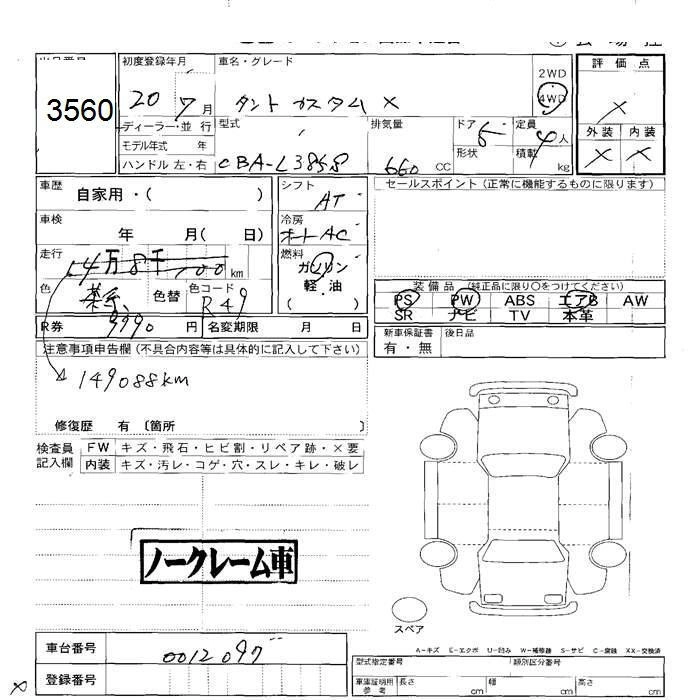 初度登録年月 車名・グレード 評価点
3560 20 7月 タント カスタム X 2WD 4WD X
ディーラー・並行 型式 排気量 ドア 5 定員 4人 外装 内装
モデル年式 年 形状 積載
ハンドル 左・右 CBA-L385S 660 CC kg X X
車歴 自家用・( ) シフト AT セールスポイント (正常に機能するものに限ります)
車検 年 月( 日) 冷房 オートAC
走行 4万8千 km 燃料 ガソリン
軽・油 装備品 (純正品に限り○をつけてください)
色 茶 色替 色コード R49 ( ) PS PW ABS エアB AW
SR ナビ TV 本革
R券 9990 円 名変期限 月 日 新車保証書 後日品
有・無
注意事項申告欄 (不具合内容等は具体的に記入して下さい)
149088km
修復歴 有 〔箇所 〕
検査員 FW キズ・飛石・ヒビ割・リペア跡・×要
記入欄 内装 キズ・汚レ・コゲ・穴・スレ・キレ・破レ
ノークレーム車
スペア
車台番号 0012097
A-キズ E-エクボ U-凹み W-補修跡 S-サビ C-腐蝕 XX-交換済
登録番号 型式指定番号 類別区分番号
車庫証明用 参考 長さ cm 幅 cm 高さ cm
X